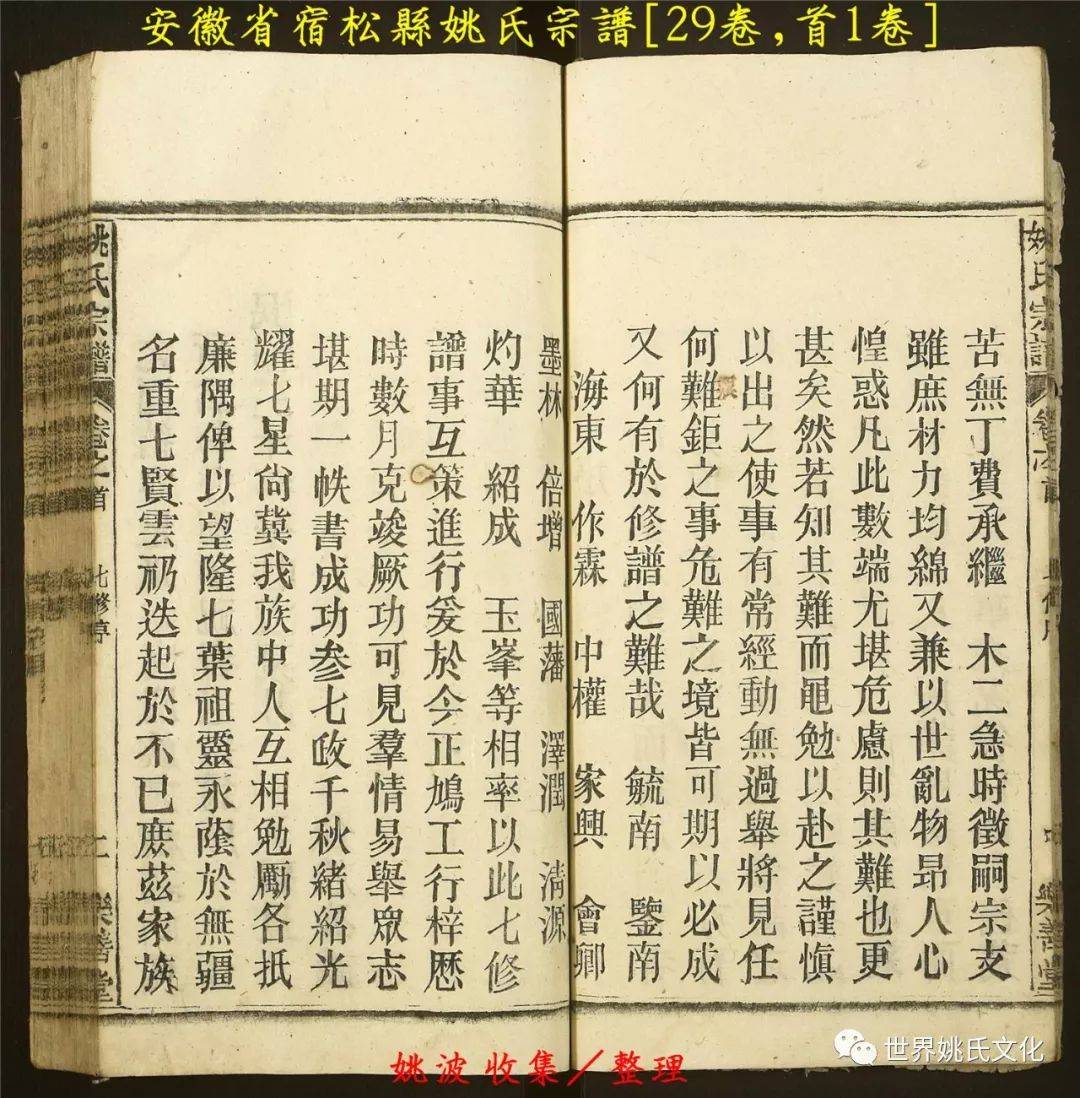 安徽省宿松縣姚氏宗譜[29卷,首1卷]
姚氏宗譜
樂善堂
苦無丁費承繼 木二急時徵嗣宗支
雖庶材力均綿又兼以世亂物昂人心
惶惑凡此數端尤堪危慮則其難也更
甚矣然若知其難而黽勉以赴之謹慎
以出之使事有常經動無過舉將見任
何難鉅之事危難之境皆可期以必成
又何有於修譜之難哉 毓南 鑒南
海東 作霖 中權 家興 會卿
墨林 倍增 國藩 澤潤 清源
灼華 紹成 玉峯等相率以此七修
譜事互策進行爰於今正鳩工行梓歷
時數月克竣厥功可見羣情易舉眾志
堪期一帙書成功參七政千秋緒紹光
耀七星尙冀我族中人互相勉勵各抵
廉隅俾以望隆七葉祖靈永蔭於無疆
名重七賢雲礽迭起於不已庶茲家族
姚氏宗譜 卷之首 七修序 二 樂善堂
姚波收集/整理
世界姚氏文化